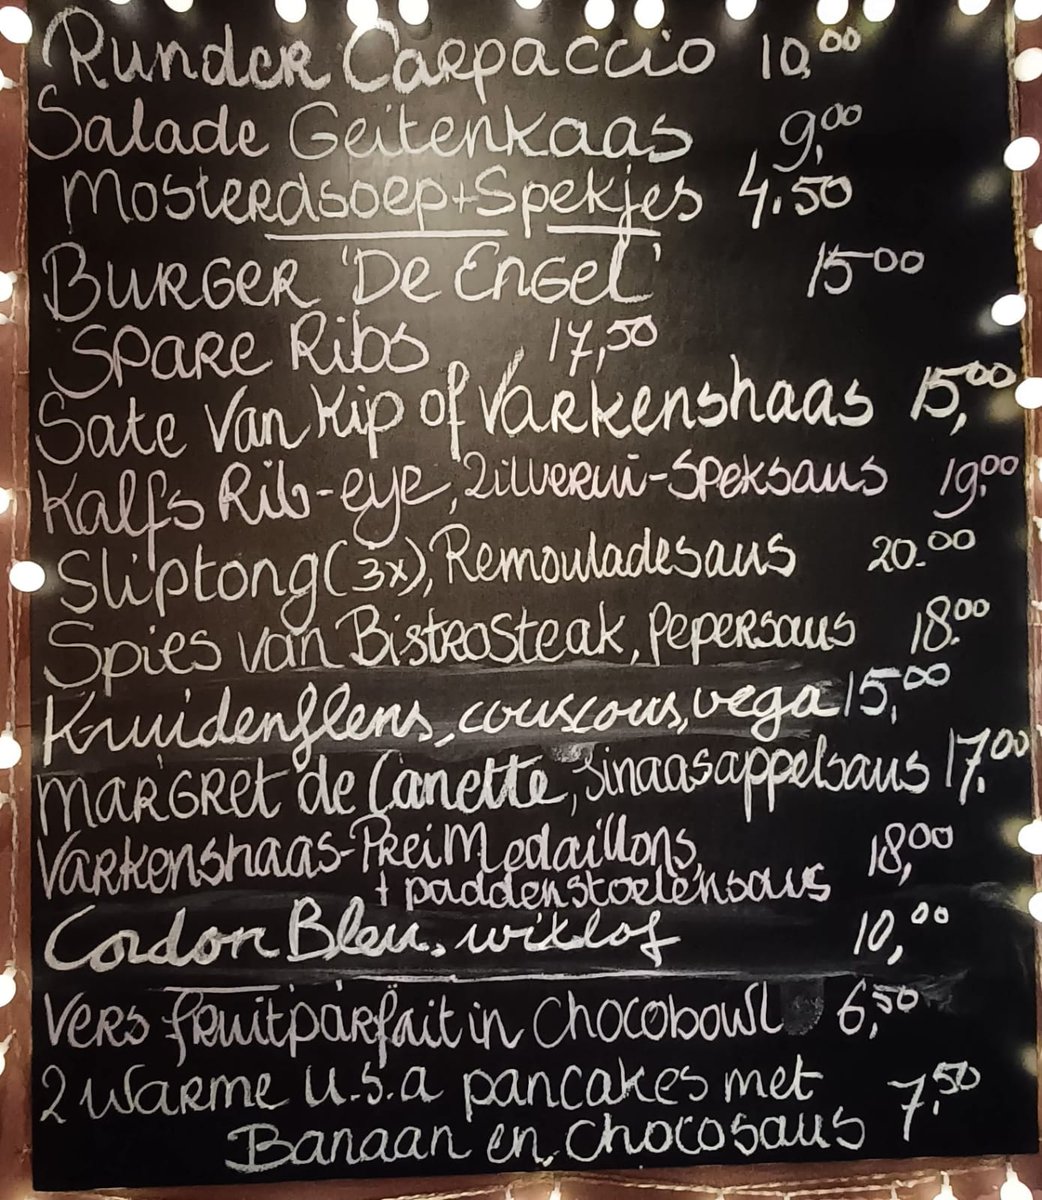 Runder Carpaccio 10,00
Salade Geitenkaas 9,00
Mosterdsoep+Spekjes 4,50
BURGER 'De Engel' 15 00
Spare Ribs 17,50
Sate Van Kip of Varkenshaas 15,00
Kalfs Rib-eye, Zilverui-Speksaus 19,00
Sliptong (3x), Remouladesaus 20.00
Spies van Bistrosteak, Pepersaus 18.00
Kruidenflens, couscous, vega 15,00
Margret de Canette, Sinaasappelsaus 17,00
Varkenshaas-Prei Medaillons, 18,00
+ paddenstoelensaus
Cordon Bleu, witlof 10,00
Vers fruitparfait in Chocobowl 6,50
2 Warme U.S.A pancakes met 7,50
Banaan en Chocosaus